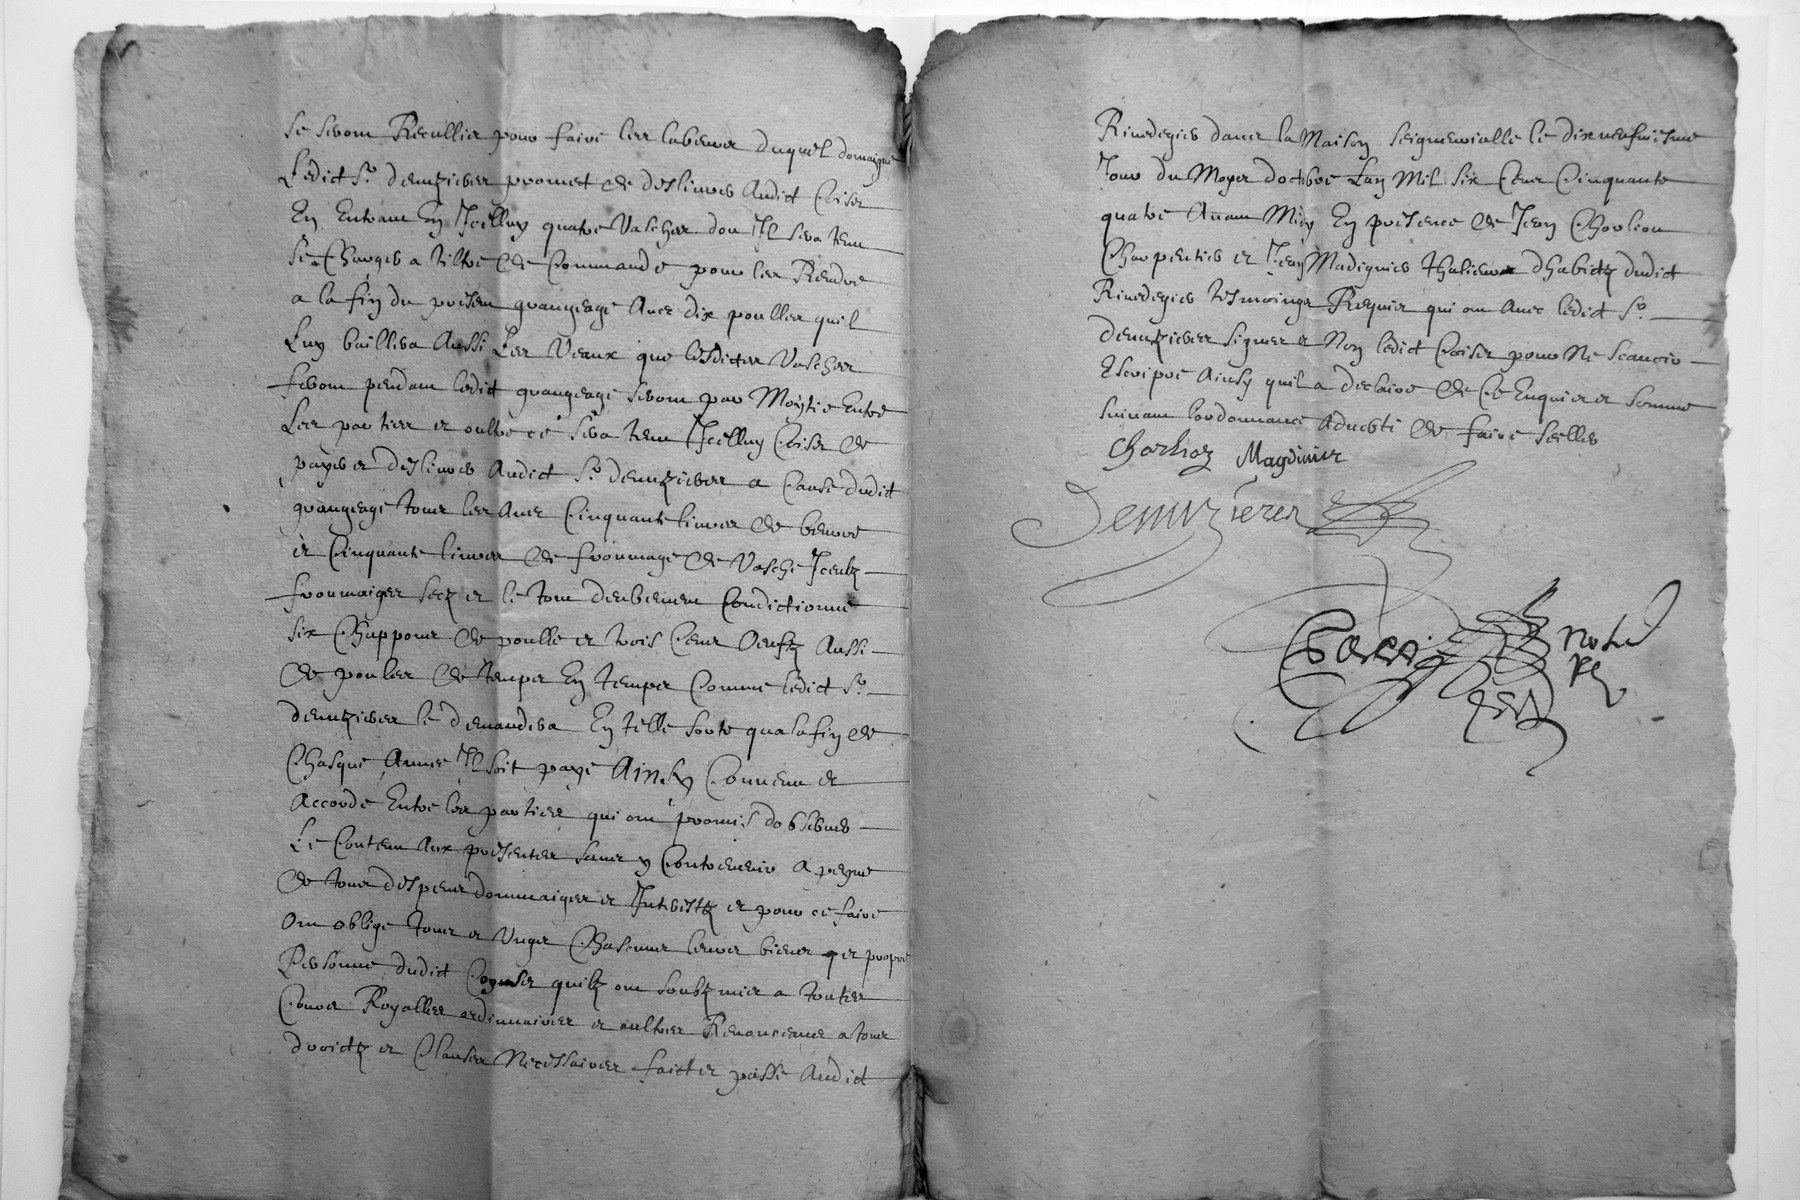 se seront Recullier pour faire les labeurs duquel domaigne
Ledict Sr demuzieres promet de deslivrer Audict Coiser
En Entrant En Jcelluy quatre Vasches dont Jl sera tenu
se Charger a tiltre de Commande pour les Rendre
a la fin du present grangeage Avec dix poulles quil
Luy baillera Aussi Les Veaux que lesdictes Vasches
feront pendant ledict grangeage seront par Moytie Entre
Les parties et oultre ce sera tenu Jcelluy Coiser de
payer et deslivrer Audict Sr demuzieres a Cause dudict
grangeage tous les Ans Cinquante livres de beurre
et Cinquante livres de froumage de Vasche Jceulx
froumaiges secz et le tout deubement Condictionne
six Chappons de poulle et trois Cens Oeufz Aussi
de poules de temps En temps Comme ledict Sr
demuzieres le demandera En telle sorte qua la fin de
Chasque Annee Jl soit paye Ainsy Convenu et
Accorde Entre les parties qui ont promis dobserver
Le Contenu Aux presentes sans y Contrevenir a peyne
de tous despens dommaiges et Jnterestz et pour ce faire
Ont oblige tous et Ungs Chascuns leurs biens et propre
Personne dudict Coyser quilz ont soubzmis a toutes
Cours Royalles ordinnaires et aultres Renonceans a tous
droictz et Clauses Necessaires faict et passe Audict
Rivedegier dans la Maison seigneurialle le dixneufviesme
Jour du Moys doctobre Lan Mil six Cens Cinquante
quatre Avant Midy En presence de Jean Chorlion
Charpentier et Jean Madignier thalieur dhabitz dudict
Rivedegier tesmoings Requis qui ont Avec ledict Sr
demuzieres signes et Non ledict Coiser pour Ne scavoir
Escripre Ainsy quil a declaire de Ce Enquis et somme
suivant lordonnance Adverti de faire seeller
Magdinier
Demuzieres